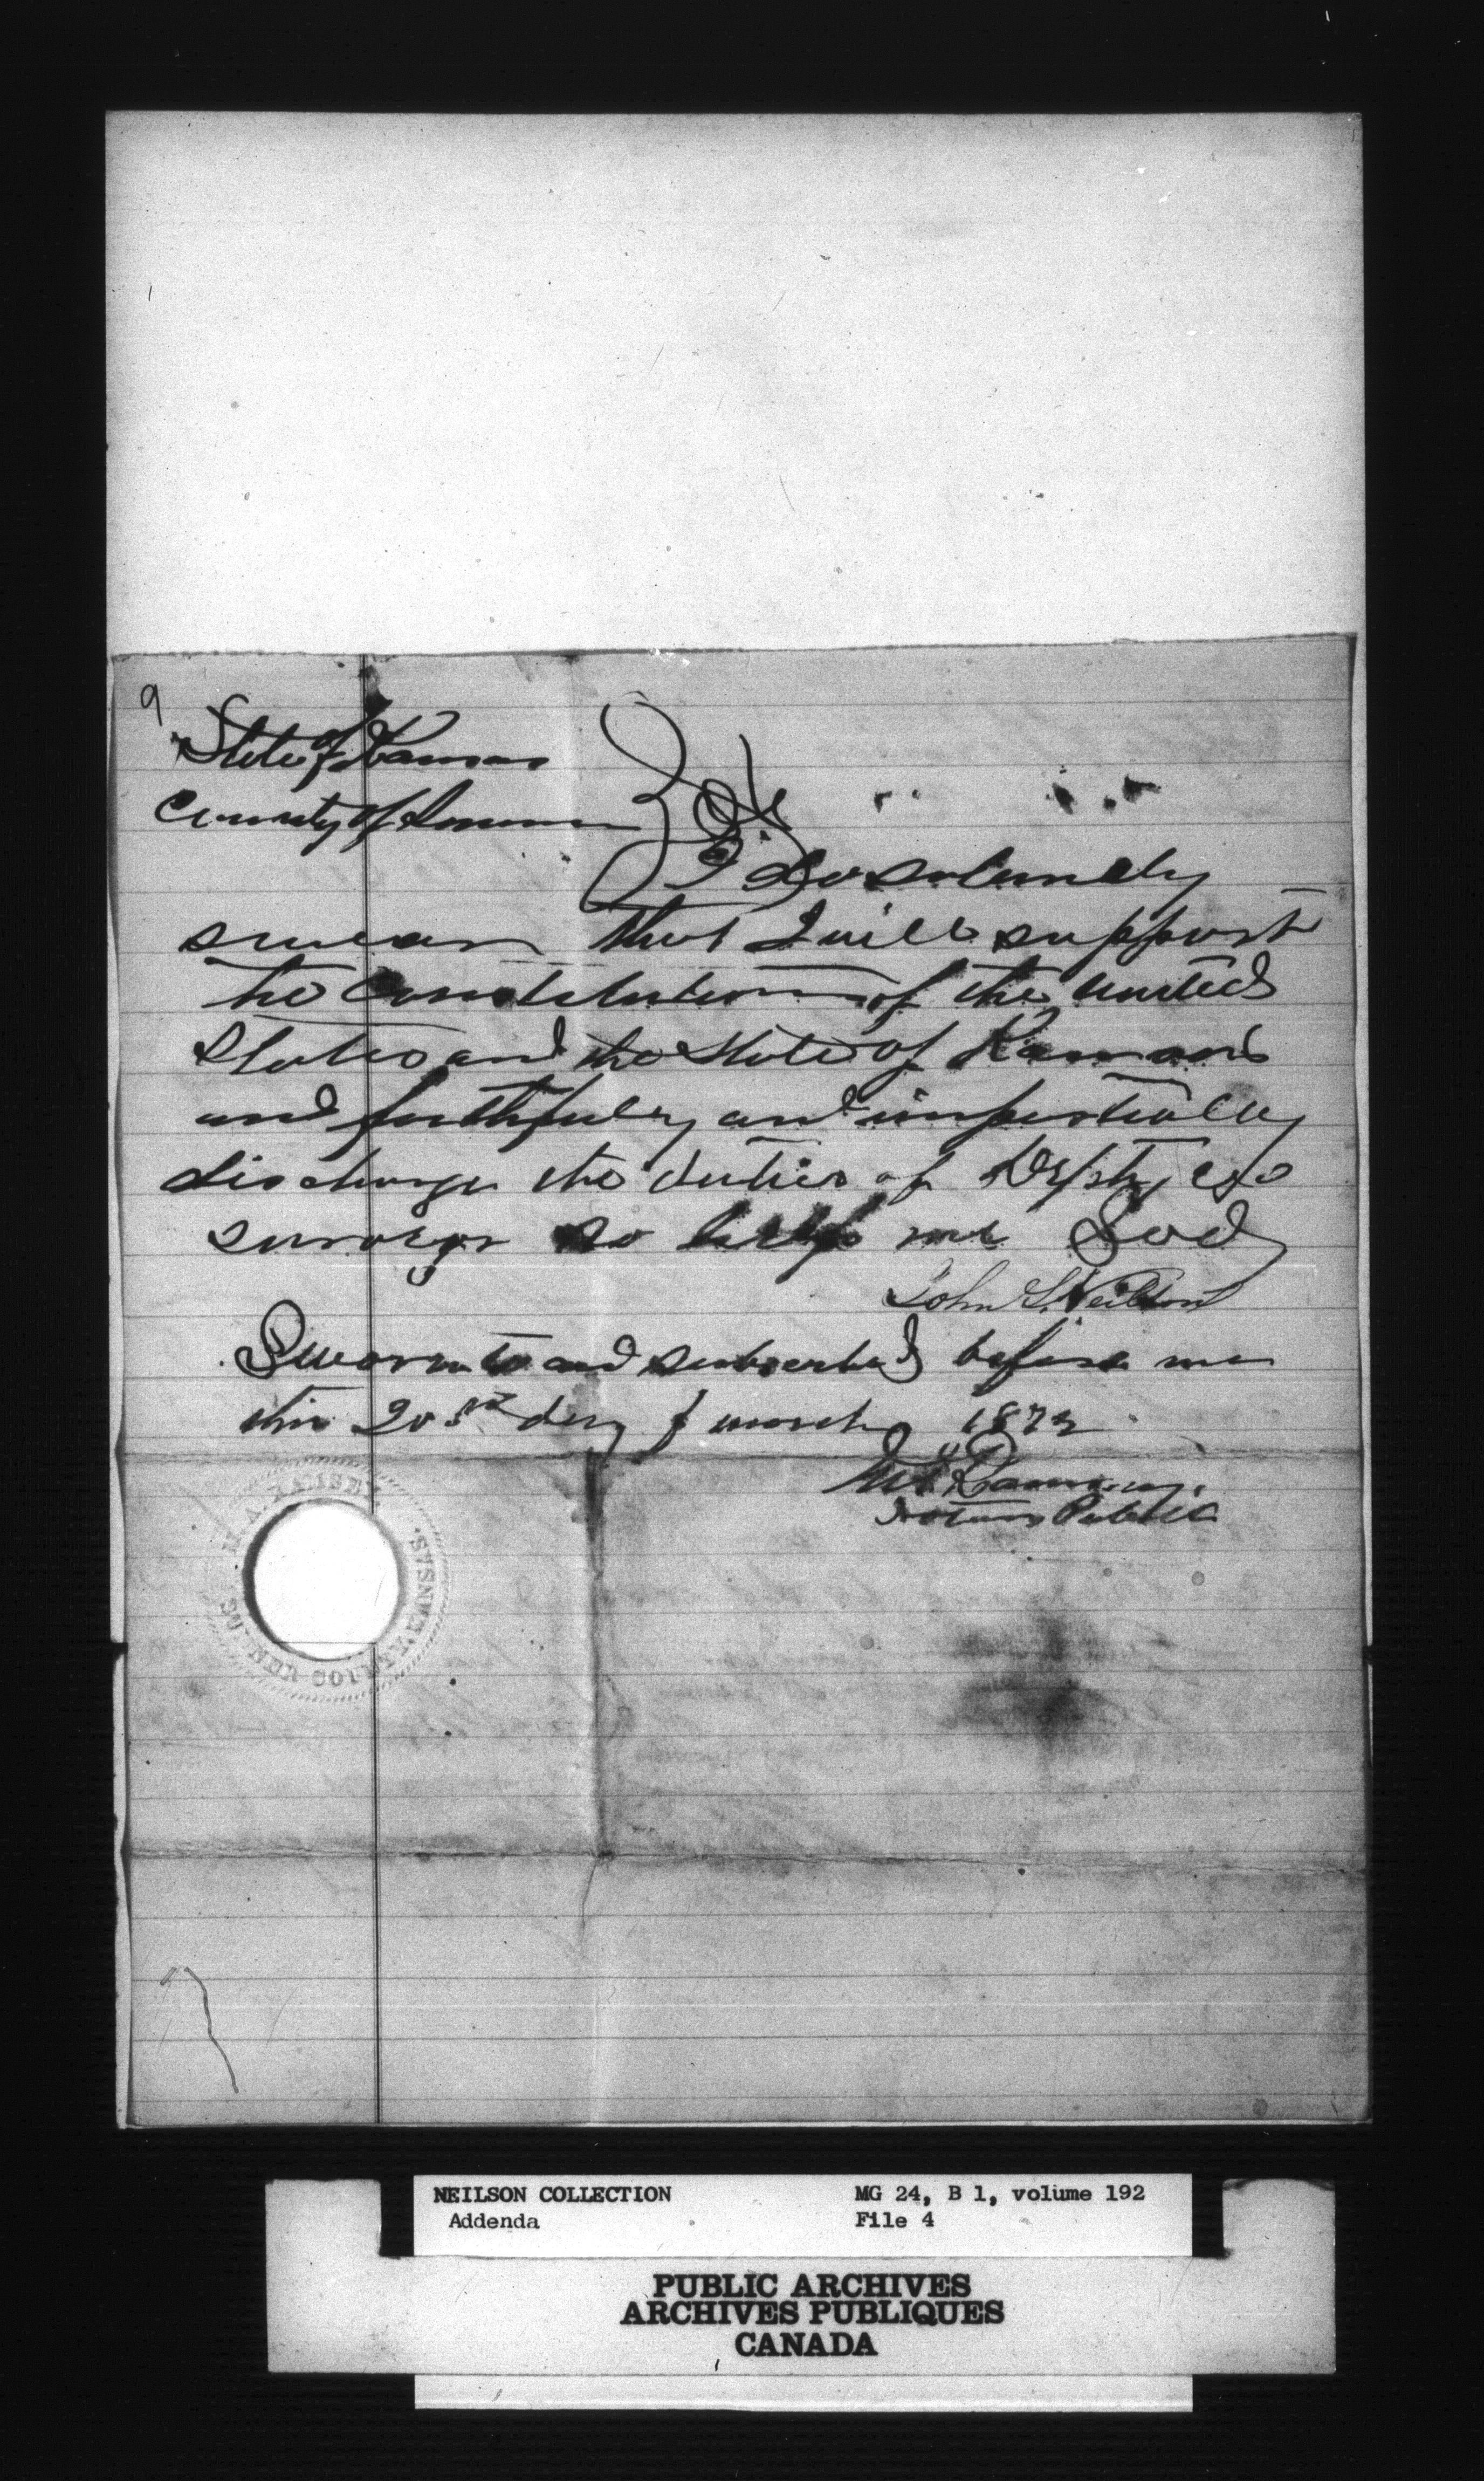 9
State of Kansas
County of Sumner } SS.
I do solumnly
swear that I will support
the Constitution of the United
States and the State of Kansas
and faithfuly and impartially
discharge the duties of Depty Co
surveyor so help me God
John S. Neilson
Sworn to and subscribed before me
this 20st day of March 1872
Ramsey
Notary Public
NEILSON COLLECTION MG 24, B 1, volume 192
Addenda File 4
PUBLIC ARCHIVES
ARCHIVES PUBLIQUES
CANADA